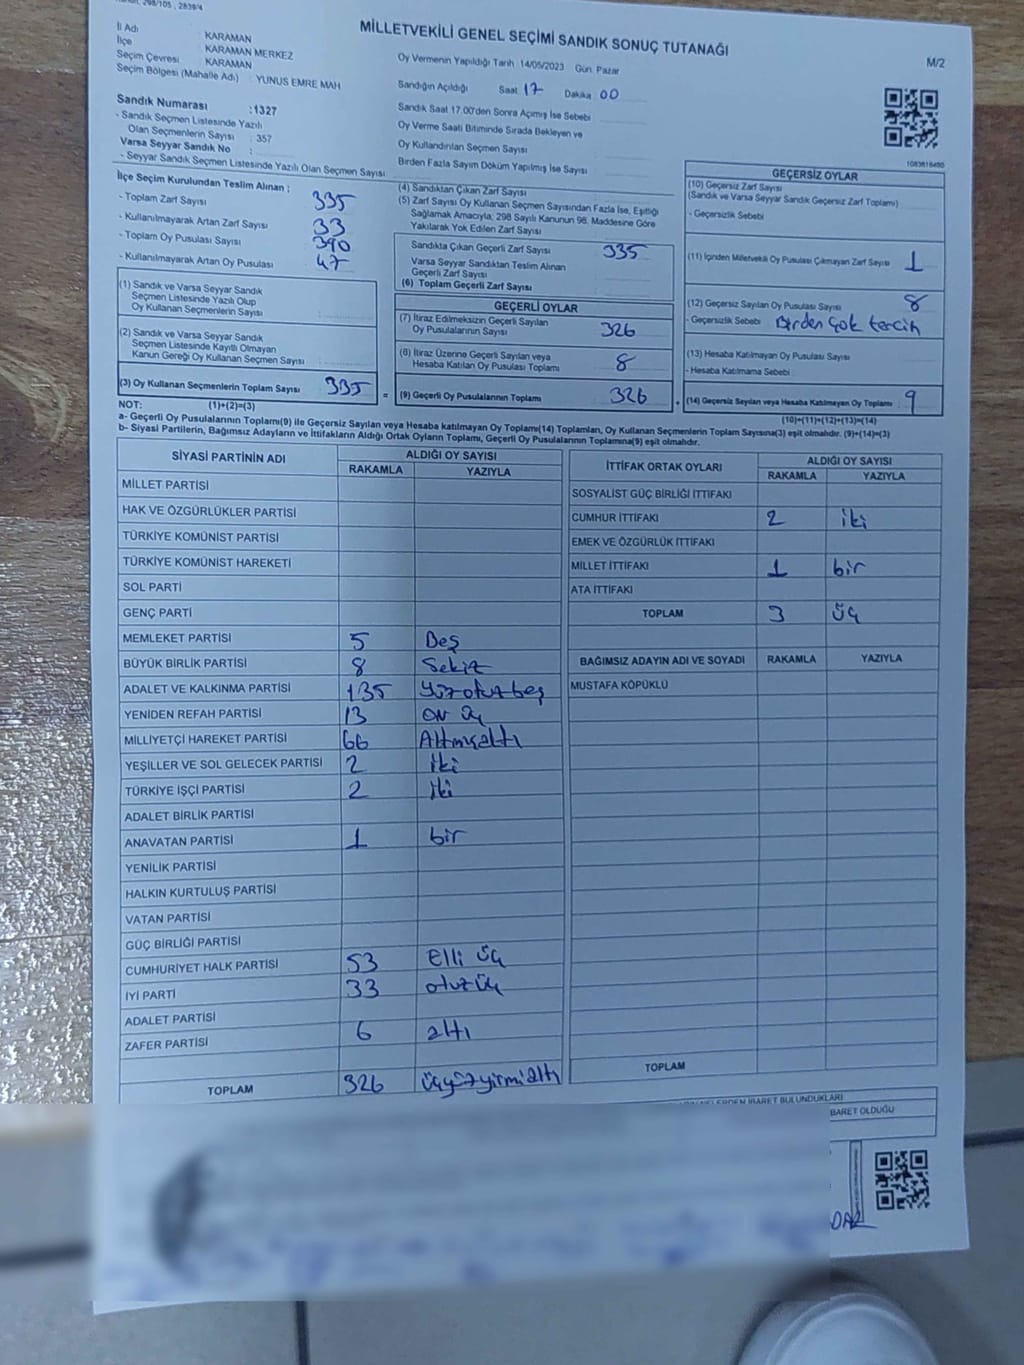 298/105 , 2839/4
MİLLETVEKİLİ GENEL SEÇİMİ SANDIK SONUÇ TUTANAĞI
M/2
İl Adı : KARAMAN
İlçe : KARAMAN MERKEZ
Seçim Çevresi : KARAMAN
Seçim Bölgesi (Mahalle Adı) : YUNUS EMRE MAH
Oy Vermenin Yapıldığı Tarih :14/05/2023 Gün: Pazar
Sandığın Açıldığı Saat 17 Dakika 00
Sandık Saat 17.00'den Sonra Açımış İse Sebebi
Oy Verme Saati Bitiminde Sırada Bekleyen ve
Oy Kullandırılan Seçmen Sayısı
Birden Fazla Sayım Döküm Yapılmış İse Sayısı
Sandık Numarası :1327
- Sandık Seçmen Listesinde Yazılı
Olan Seçmenlerin Sayısı : 357
Varsa Seyyar Sandık No :
- Seyyar Sandık Seçmen Listesinde Yazılı Olan Seçmen Sayısı
İlçe Seçim Kurulundan Teslim Alınan ;
- Toplam Zarf Sayısı 335
- Kullanılmayarak Artan Zarf Sayısı 33
- Toplam Oy Pusulası Sayısı 390
- Kullanılmayarak Artan Oy Pusulası 47
(1) Sandık ve Varsa Seyyar Sandık
Seçmen Listesinde Yazılı Olup
Oy Kullanan Seçmenlerin Sayısı :
(2) Sandık ve Varsa Seyyar Sandık
Seçmen Listesinde Kayıtlı Olmayan
Kanun Gereği Oy Kullanan Seçmen Sayısı
(3) Oy Kullanan Seçmenlerin Toplam Sayısı 335 =
(4) Sandıktan Çıkan Zarf Sayısı
(5) Zarf Sayısı Oy Kullanan Seçmen Sayısından Fazla İse, Eşitliği
Sağlamak Amacıyla; 298 Sayılı Kanunun 98. Maddesine Göre
Yakılarak Yok Edilen Zarf Sayısı
Sandıkta Çıkan Geçerli Zarf Sayısı 335
Varsa Seyyar Sandıktan Teslim Alınan
Geçerli Zarf Sayısı
(6) Toplam Geçerli Zarf Sayısı
GEÇERLİ OYLAR
(7) İtiraz Edilmeksizin Geçerli Sayılan
Oy Pusulalarının Sayısı 326
(8) İtiraz Üzerine Geçerli Sayılan veya
Hesaba Katılan Oy Pusulası Toplamı 8
(9) Geçerli Oy Pusulalarının Toplamı 326 +
1083818450
GEÇERSİZ OYLAR
(10) Geçersiz Zarf Sayısı
(Sandık ve Varsa Seyyar Sandık Geçersiz Zarf Toplamı)
- Geçersizlik Sebebi
(11) İçinden Milletvekili Oy Pusulası Çıkmayan Zarf Sayısı 1
(12) Geçersiz Sayılan Oy Pusulası Sayısı 8
- Geçersizlik Sebebi Birden çok tercih
(13) Hesaba Katılmayan Oy Pusulası Sayısı
- Hesaba Katılmama Sebebi :
(14) Geçersiz Sayılan veya Hesaba Katılmayan Oy Toplamı : 9
NOT: (1)+(2)=(3)
(10)+(11)+(12)+(13)=(14)
a- Geçerli Oy Pusulalarının Toplamı(9) ile Geçersiz Sayılan veya Hesaba katılmayan Oy Toplamı(14) Toplamları, Oy Kullanan Seçmenlerin Toplam Sayısına(3) eşit olmalıdır. (9)+(14)=(3)
b- Siyasi Partilerin, Bağımsız Adayların ve İttifakların Aldığı Ortak Oyların Toplamı, Geçerli Oy Pusulalarının Toplamına(9) eşit olmalıdır.
SİYASİ PARTİNİN ADI ALDIĞI OY SAYISI
RAKAMLA YAZIYLA
MİLLET PARTİSİ
HAK VE ÖZGÜRLÜKLER PARTİSİ
TÜRKİYE KOMÜNİST PARTİSİ
TÜRKİYE KOMÜNİST HAREKETİ
SOL PARTİ
GENÇ PARTİ
MEMLEKET PARTİSİ 5 Beş
BÜYÜK BİRLİK PARTİSİ 8 Sekiz
ADALET VE KALKINMA PARTİSİ 135 Yüz otuz beş
YENİDEN REFAH PARTİSİ 13 on üç
MİLLİYETÇİ HAREKET PARTİSİ 66 Altmışaltı
YEŞİLLER VE SOL GELECEK PARTİSİ 2 iki
TÜRKİYE İŞÇİ PARTİSİ 2 iki
ADALET BİRLİK PARTİSİ
ANAVATAN PARTİSİ 1 bir
YENİLİK PARTİSİ
HALKIN KURTULUŞ PARTİSİ
VATAN PARTİSİ
GÜÇ BİRLİĞİ PARTİSİ
CUMHURİYET HALK PARTİSİ 53 Elli üç
İYİ PARTİ 33 otuz üç
ADALET PARTİSİ
ZAFER PARTİSİ 6 altı
TOPLAM 326 üçyüzyirmialtı
İTTİFAK ORTAK OYLARI ALDIĞI OY SAYISI
RAKAMLA YAZIYLA
SOSYALİST GÜÇ BİRLİĞİ İTTİFAKI
CUMHUR İTTİFAKI 2 iki
EMEK VE ÖZGÜRLÜK İTTİFAKI
MİLLET İTTİFAKI 1 bir
ATA İTTİFAKI
TOPLAM 3 üç
BAĞIMSIZ ADAYIN ADI VE SOYADI RAKAMLA YAZIYLA
MUSTAFA KÖPÜKLÜ
TOPLAM
İBARET BULUNDUKLARI
BARET OLDUĞU